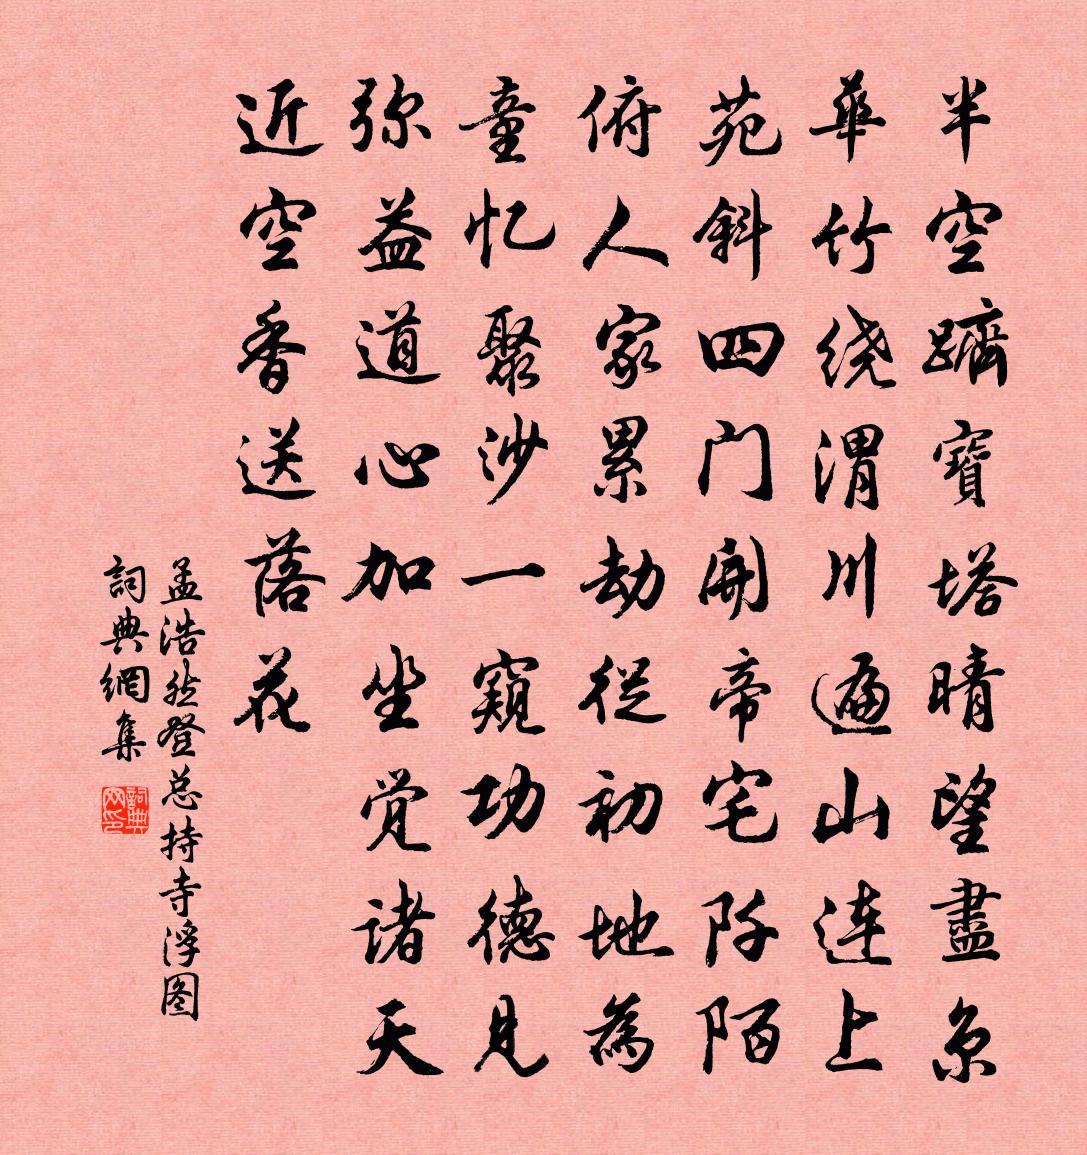 半空躋寶塔晴望盡京
華竹绕渭川遍山连上
苑斜四门開帝宅阡陌
俯人家累劫從初地為
童忆聚沙一窥功德見
弥益道心加坐觉诸天
近空香送落花
孟浩然登总持寺浮图
詞典網集
詞典网印